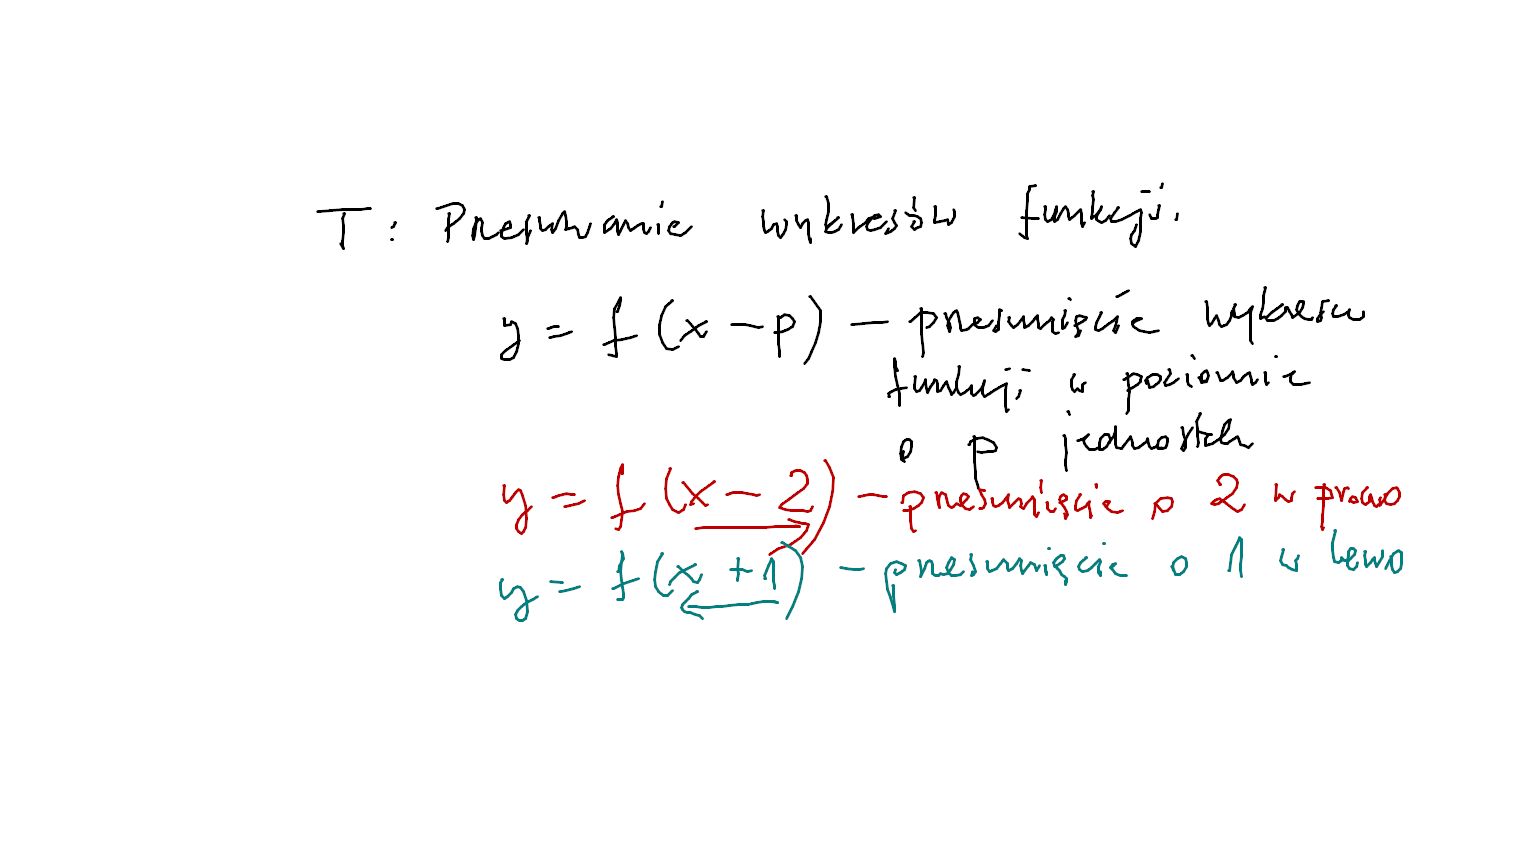 T: Przesuwanie wykresów funkcji.
y = f(x-p) - przesunięcie wykresu
funkcji w poziomie
o p jednostek
y = f(x-2) - przesunięcie o 2 w prawo
y = f(x+1) - przesunięcie o 1 w lewo